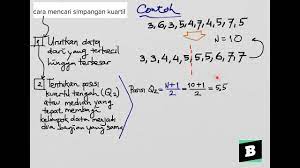 cara mencari simpangan kuartil
1 Urutkan data
dari yang terkecil
hingga terbesar
2 Tentukan posisi
kuartil tengah (Q2)
atau median yang
tepat membagi
kelompok data menjadi
dua bagian yang sama
Contoh
3,6,3,5,4,7,4,5,7,5
N=10
3,3,4,4,5,5,5,6,7,7
Posisi Q2 = N+1/2 = 10+1/2 = 5,5
B